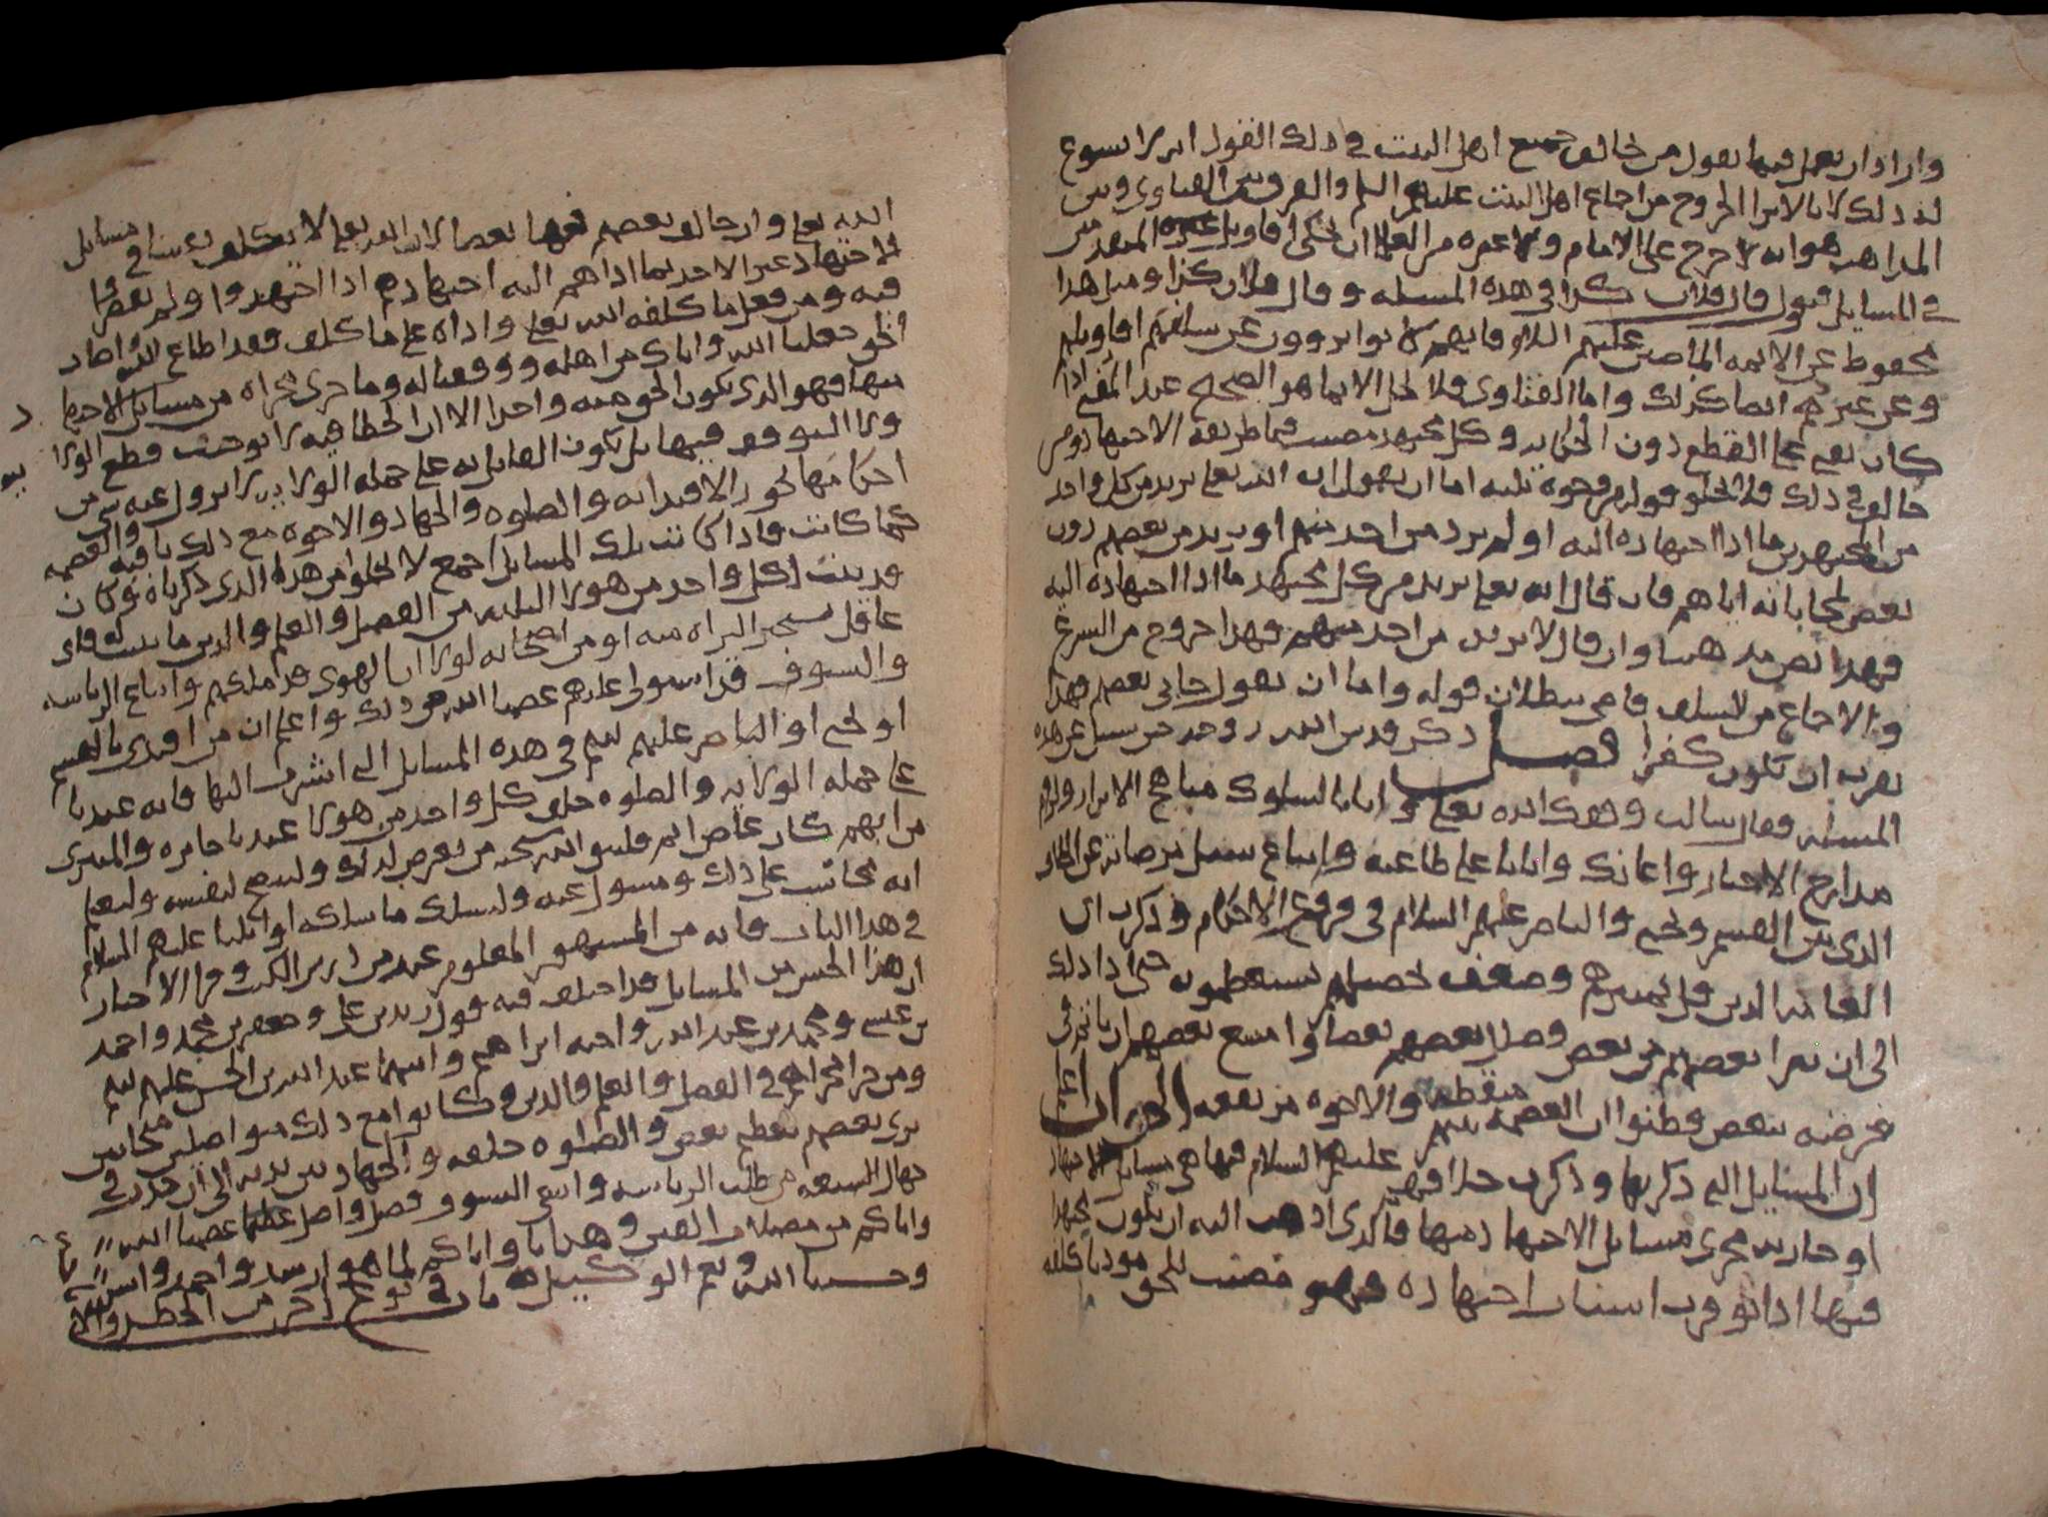 وان اراد ان يعمل فيما يقول من خالف جميع اهل البيت في ذلك القول لم يسوغ
له ذلك لانا لا نرا الخروج من اجماع اهل البيت عليهم السلم والفرق بين الفتاوى وبين
المذاهب هو انه لا حرج على الامام ولا غيره من العلما ان يحكي اقاويل غيره المتقدمين
في المسايل فيقول قال فلان كذا في هذه المسله وقال فلان كذا ومثل هذا
محفوظ عن الايمه الماضين عليهم السلام فانهم كانوا يروون عن سلفهم اقاويلهم
وعن غيرهم ايضا كذلك واما الفتاوى فلا تحل الا بما هو الصحيح عند المفتي اذا
كان يفتي على القطع دون الحكايه وكل مجتهد مصيب فيما طريقه الاجتهاد ومن
خالف في ذلك فلا يخلو قوله من وجوه ثلثه اما ان يقول ان الله تعلى يريد من كل واحد
من المجتهدين ما ادا اجتهاده اليه او لم يرد من احد منهم او يريد من بعضهم دون
بعض لمحاباته اياهم فان قال انه تعلى يريد من كل مجتهد ما ادا اجتهاده اليه
فهذا نص مذهبنا وان قال لا يريد من احد منهم فهذا خروج من الشرع
والاجماع من السلف قاض ببطلان قوله واما ان يقول حابى بعضهم فهذا
يقرب ان يكون كفرا فصل ذكر قدس الله روحه حين سيل عن هذه
المسله فقال سالت وفقك الله تعلى وايانا لسلوك مناهج الابرار ولزوم
مدارج الاخيار واعانك وايانا على طاعته واتباع سبيل مرضاته عن الخلاف
الذي بين القسم ويحيى والناصر عليهم السلام في فروع الاحكام وذكرت ان
العامه الذين قل تمييزهم وضعف تحصيلهم يستعظمون حتى ادا ذلك
الى ان تبرا بعضهم من بعض وضلل بعضهم بعضا وامتنع بعضهم ان ياتم في
فرضه ببعض وظنوا ان العصمه بينهم منقطعه والاخوه مرتفعه الجواب اعلم
ان المسايل التي ذكرتها وذكرت خلافهم عليهم السلام فيها هي مسايل الاجتهاد
او جاريه مجرى مسايل الاجتهاد منها فالذي اذهب اليه ان يكون مجتهدا
فيها اذا توفرت اسباب اجتهاده فهو مصيب للحق مود ما كلفه
الله تعلى وان خالف بعضهم فيها بعضا لان الله تعلى لا يكلف عبدنا في مسايل
الاجتهاد غير الاخذ بما اداهم اليه اجتهادهم اذا اجتهدوا ولم يقصروا
فيه ومن فعل ما كلفه الله تعلى واداه على ما كلف فقد اطاع الله واصاب
الحق جعلنا الله واياك من اهله ووفقنا له وما جرى مجراه من مسايل الاجتهاد
منها فهو الذي يكون الحق منه واحدا الا ان الخطا فيه لا يوجب قطع الولا
ولا التوقف فيها بل يكون القايل به على جمله الولايه لا يزول عنه شي من
احكامها نحو الاقتدا به والصلوه والجهاد والاخوه مع ذلك باقيه والعصمه
كما كانت فاذا كانت تلك المسايل اجمع لا تخلو من هذا الذي ذكرناه وكان
قد ثبت لكل واحد من هولا الثلثه من الفضل والعلم والدين ما ثبت له فاى
عاقل يستجيز البراه منه او من اصحابه لولا اتباع الهوى قد املكهم واتباع الرياسه
والتسوق قد استولى عليهم عصمنا الله من ذلك واعلم ان من اقتدى بالقسم
او يحيى او الناصر عليهم السلم في هذه المسايل التي اشرت اليها فانه عندنا
على جمله الولايه والصلوه خلف كل واحد من هولا عندنا جايزه والمتبري
من ايهم كان عاص اثم فليتق الله سبحنه من تعرض لذلك ولينصح لنفسه وليعلم
انه محاسب على ذلك ومسول عنه وليسلك ما سلكه اوايلنا عليهم السلام
في هذا الباب فانه من المشهور المعلوم عند من درس الكتب وقرا الاخبار
ان هذا الجنس من المسايل قد اختلف فيه قول زيد بن علي وجعفر بن محمد واحمد
بن عيسى ومحمد بن عبد الله واخيه ابراهيم وابيهما عبد الله بن الحسن عليهم السلم
ومن جرا مجراهم في الفضل والعلم والدين وكانوا مع ذلك متواصلين متحابين
يرى بعضهم تعظيم بعض والصلوه خلفه والجهاد بين يديه الى ان حدث في
جهال الشيعه من طلب الرياسه وابتغى التسوق فضل واضل عظيما عصمنا الله
واياكم من مضلات الفتن وهدانا واياكم لما هو ارشد واحمد
وحسبنا الله ونعم الوكيل